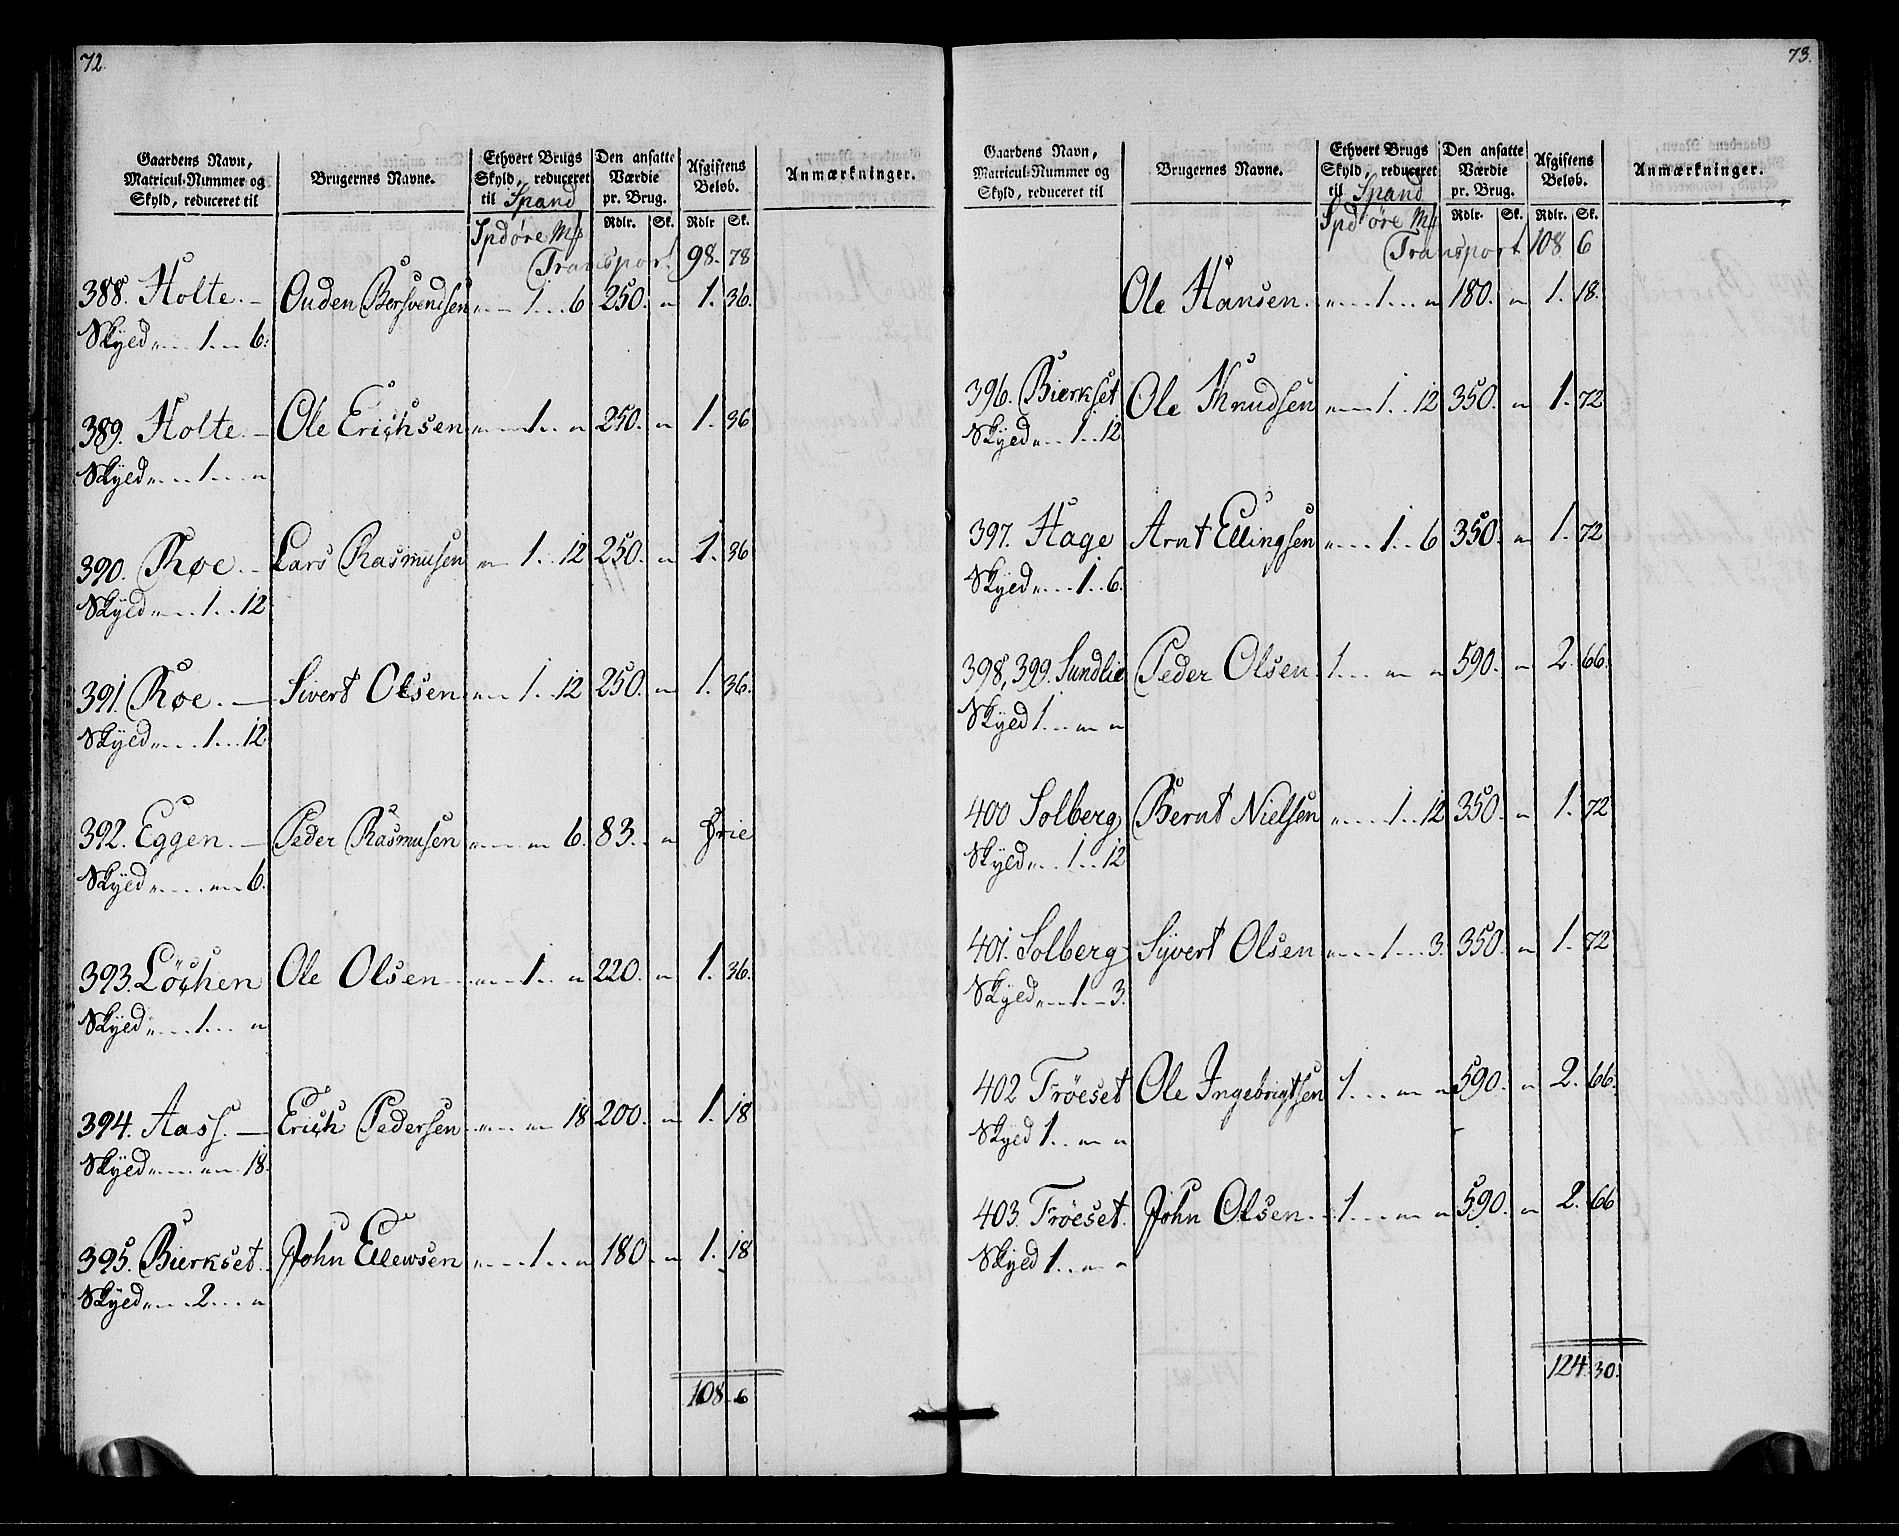 72.
Gaardens Navn, Matricul-Nummer og Skyld, reduceret til | Brugernes Navne. | Ethvert Brugs Skyld, reduceret til Spand | Den ansatte Værdie pr. Brug. | Afgiftens Beløb. | Anmærkninger.
Spd øre Mk | Rdlr. | Sk. | Rdlr | Sk.
Transport 98. 78
388. Holte. — Ouden Bersvendsen „ 1 .. 6 250. „ 1. 36.
Skyld „ .. 1 .. 6.
389. Holte. — Ole Erichsen „ 1 .. „ 250. „ 1. 36
Skyld „ .. 1 .. „
390. Røe. — Lars Rasmusen „ 1 .. 12 250. „ 1. 36
Skyld „ .. 1 .. 12
391. Røe. — Sivert Olsen „ 1 .. 12 250. „ 1. 36.
Skyld „ .. 1 .. 12
392. Eggen. — Peder Rasmusen „ „ 6. 83. „ Frie
Skyld „ .. „ 6.
393. Löchen Ole Olsen „ 1 .. „ 220. „ 1. 36.
Skyld „ .. 1 .. „
394. Aass. — Erich Pedersen „ „ 18 200. „ 1. 18
Skyld „ .. „ 18.
395. Bierkset. John Ellewsen „ 1 .. „ 180. „ 1. 18
Skyld „ .. 2 .. „
108. 6
73.
Gaardens Navn, Matricul-Nummer og Skyld, reduceret til | Brugernes Navne. | Ethvert Brugs Skyld, reduceret til Spand | Den ansatte Værdie pr. Brug. | Afgiftens Beløb. | Anmærkninger.
Spd øre Mk | Rdlr. | Sk. | Rdlr. | Sk.
Transport 108 6
Ole Hansen. „ 1 .. „ 180. „ 1. 18.
396. Bierkset Ole Knudsen „ 1 .. 12 350. „ 1. 72
Skyld „ .. 1 .. 12
397. Hage Arnt Ellingsen „ 1 .. 6 350. „ 1. 72
Skyld „ .. 1 .. 6.
398, 399. Sundlie Peder Olsen 1 .. „ „ 590. „ 2. 66.
Skyld 1 .. „ „
400 Solberg Bernt Nielsen „ 1 .. 12 350. „ 1. 72
Skyld „ .. 1 .. 12
401. Solberg Syvert Olsen „ 1 .. 3. 350. „ 1. 72
Skyld „ .. 1 .. 3.
402 Tröeset Ole Ingebrigtsen 1 .. „ „ 590. „ 2. 66.
Skyld 1 .. „ „
403. Tröeset. John Olsen. 1 .. „ „ 590. „ 2. 66
Skyld 1 .. „ „
124. 30.